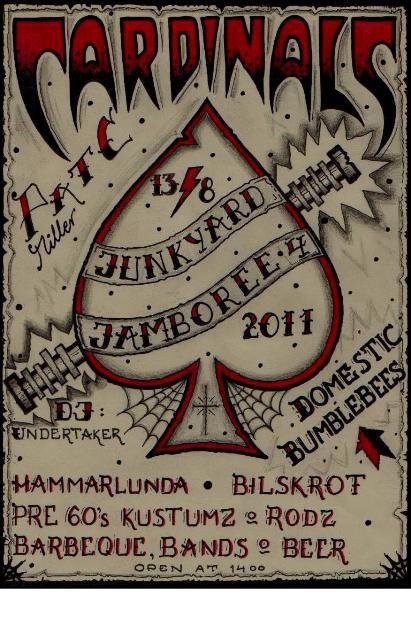 CARDINALS
PATE
Miller
13/8
JUNKYARD
JAMBOREE 4
2011
DJ:
UNDERTAKER
DOMESTIC
BUMBLEBEES
HAMMARLUNDA • BILSKROT
PRE 60's KUSTUMZ o RODZ
BARBEQUE, BANDS o BEER
OPEN AT 1400